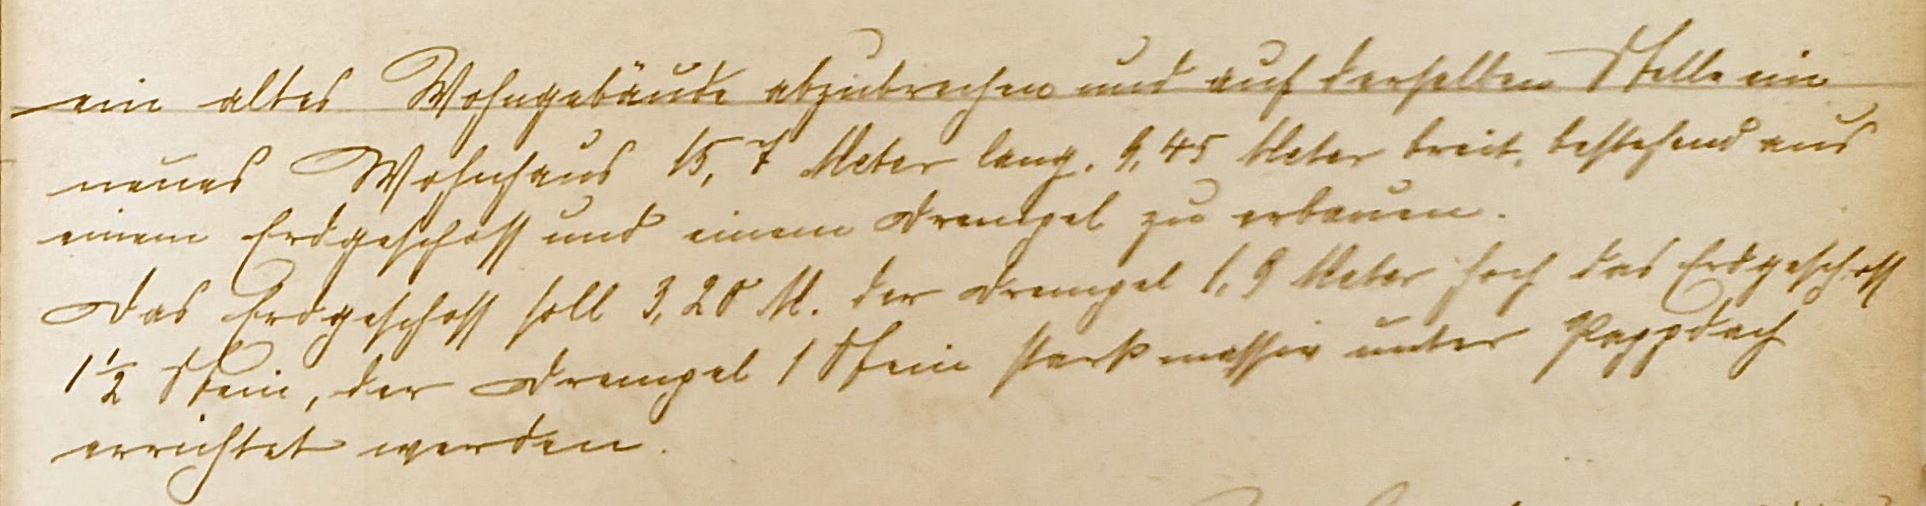 ein altes Wohngebäude abzubrechen und auf derselben Stelle ein
neues Wohnhaus 15,7 Meter lang, 9,45 Meter breit, bestehend aus
einem Erdgeschoss und einem Drempel zu erbauen.
Das Erdgeschoss soll 3,20 M. der Drempel 1,9 Meter hoch das Erdgeschoss
1½ Stein, der Drempel 1 Stein stark massiv unter Pappdach
errichtet werden.